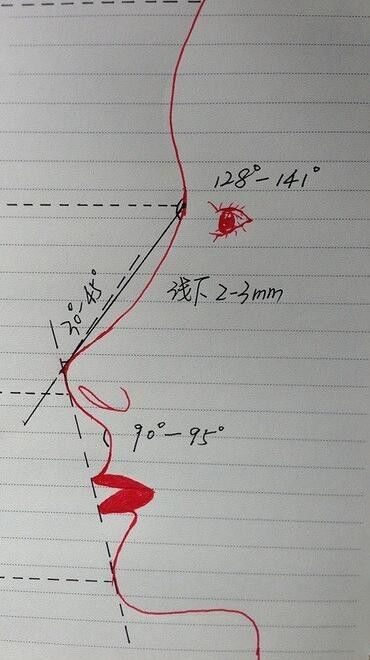 128°-141°
130°-45°
线下2-3mm
90°-95°